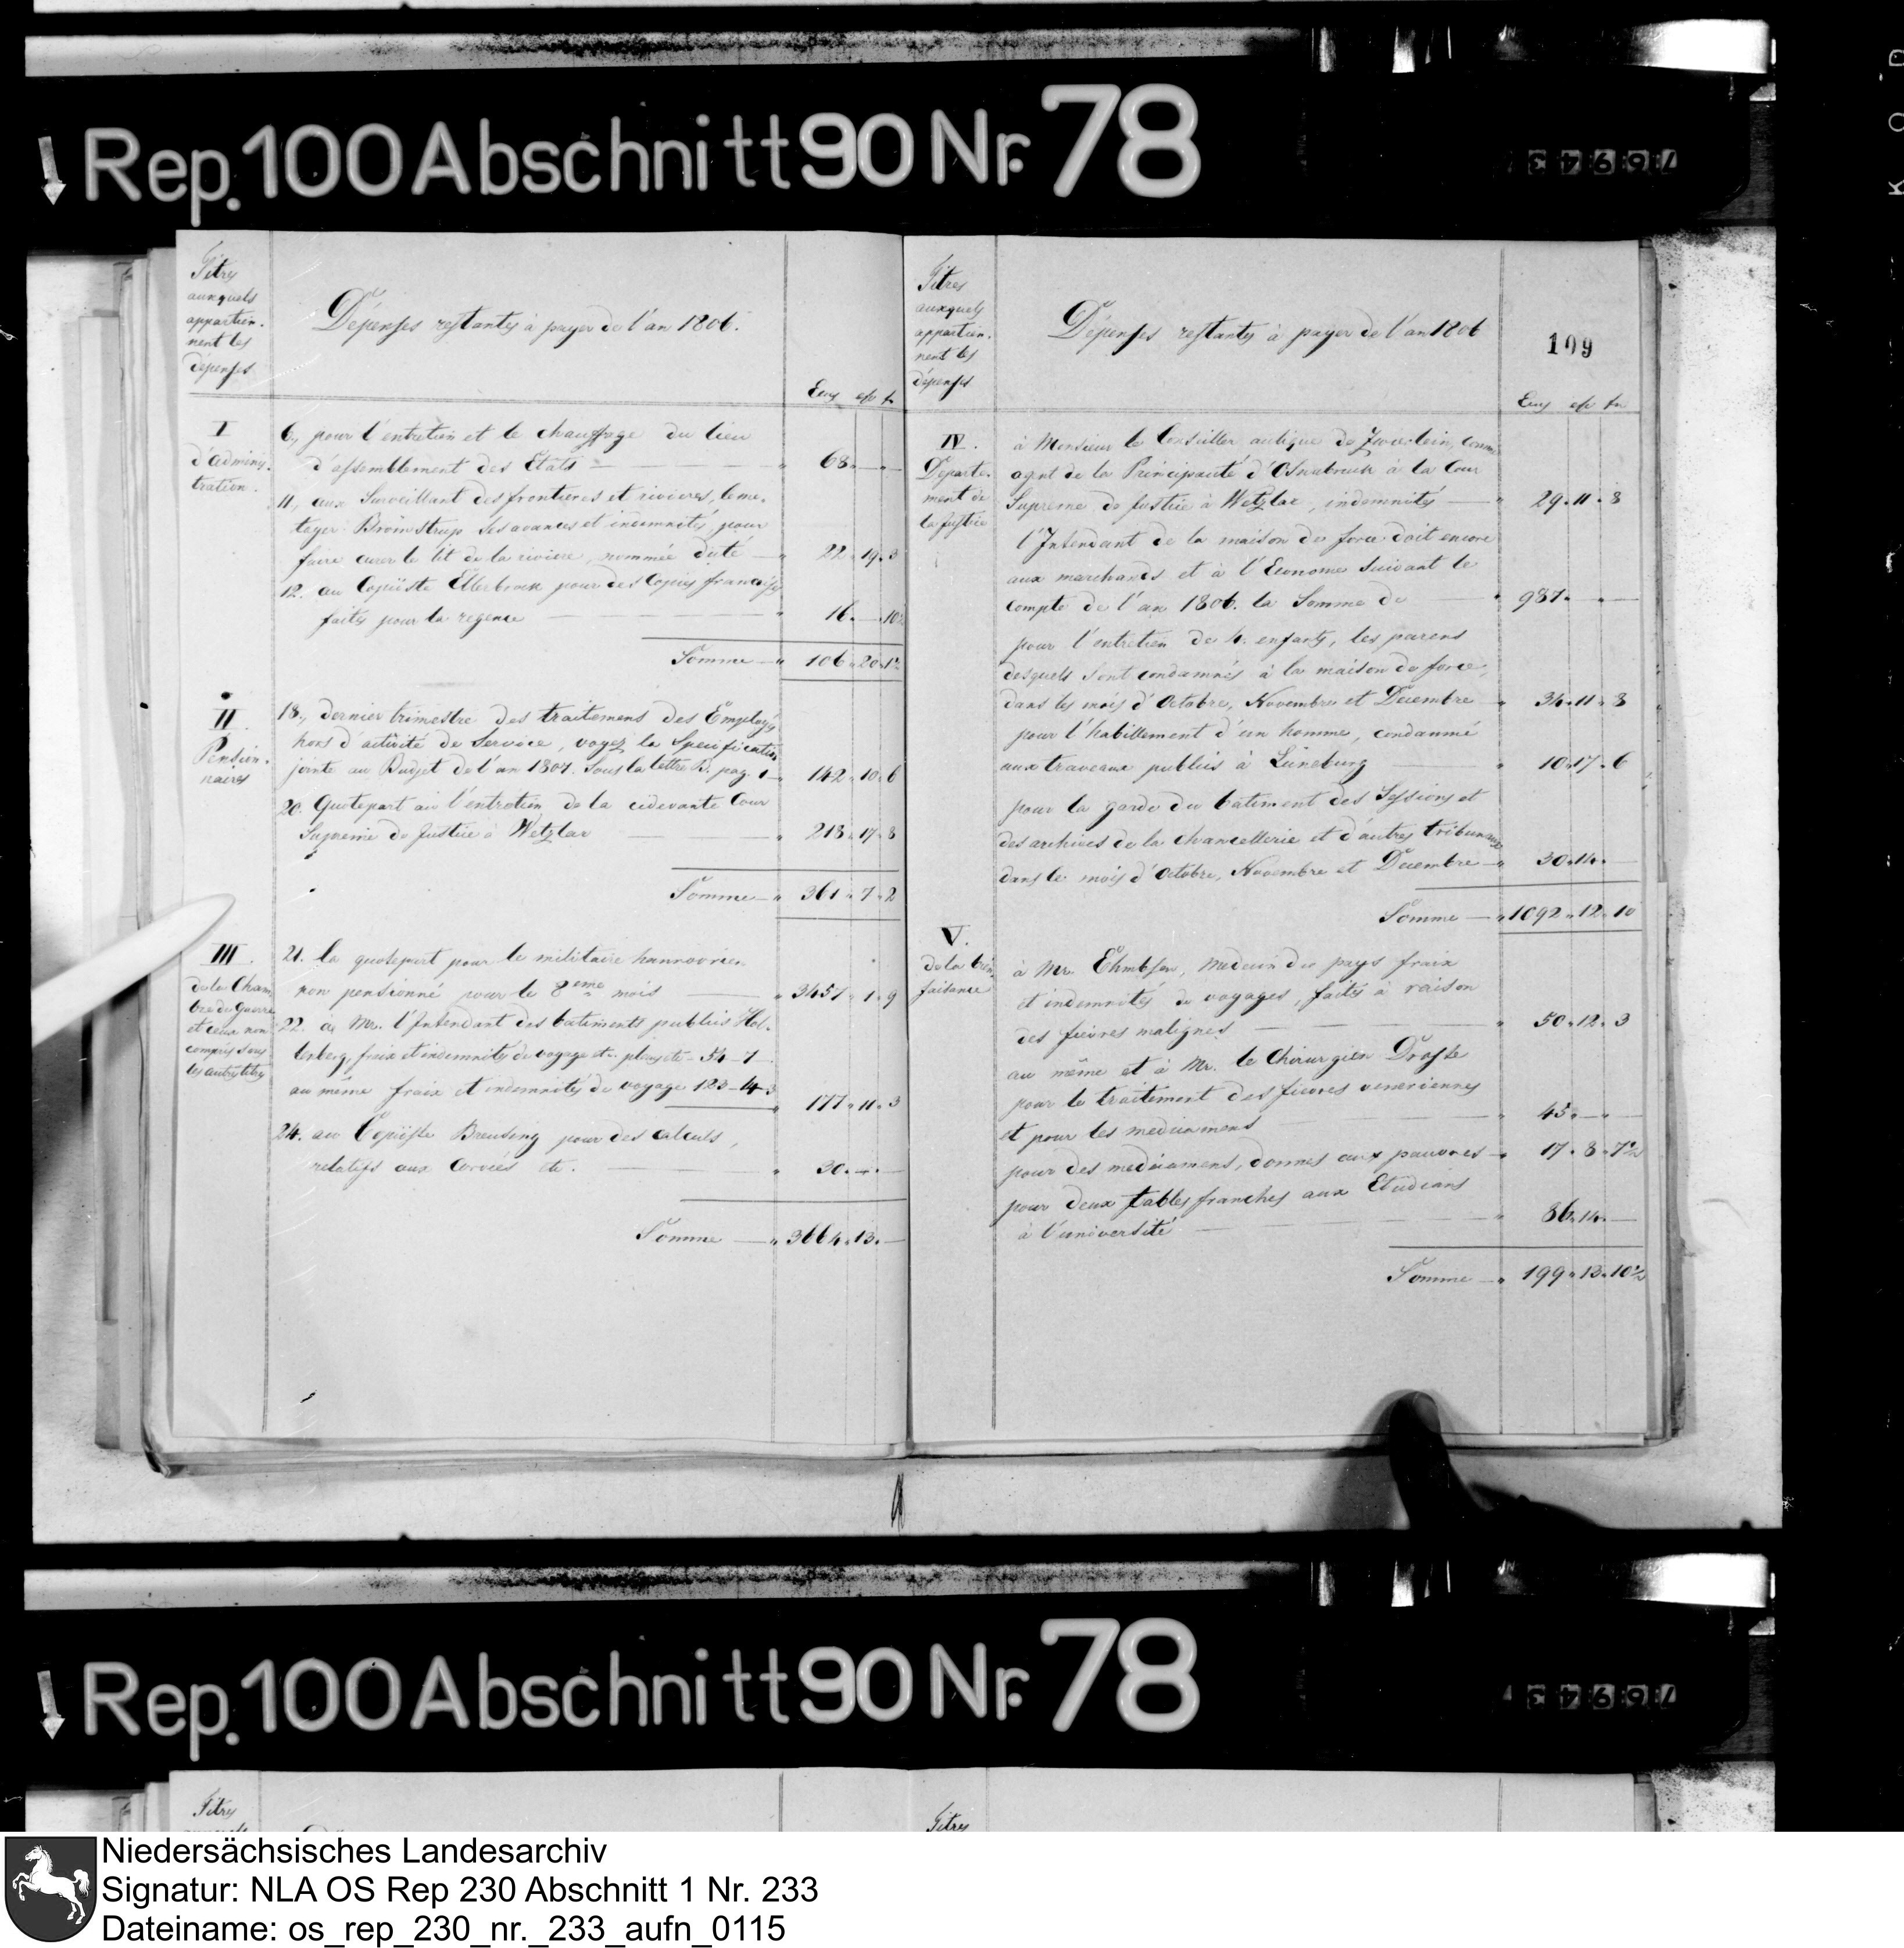 Rep. 100 Abschnitt 90 Nr. 78
76943
Titres
auxquels
appartien-
nent les
dépenses
Dépenses restantes à payer de l'an 1806.
Ecus
I
d'adminis-
tration.
6., pour l'entretien et le chauffage du lieu
d'assemblement des Etats — " 68. — . —
11., aux Surveillant des frontieres et rivieres, le me-
ses avances et indemnités, pour
faire curer le lit de la riviere, nommée — " 22 . 19 . 3
12. au Copiiste Ellerbrock pour des Copies françaises
faites pour la regence — " 16. — . 10½
Somme — " 106 . 20 . 1½
II
Pension-
naires
18., dernier trimestre des traitemens des Employés
hors d'activité de Service, voyez la Specification
jointe au Budjet de l'an 1807. Sous la lettre B. pag. 1 — 142 . 10 . 6
20. Quotepart à l'entretien de la cidevante Cour
Supreme de Justice à Wetzlar — " 218 . 17 . 8
Somme — " 361 . 7 . 2
III.
de la Cham-
bre de Guerre
et ceux non
compris sous
les autres titres
21. la quotepart pour le militaire hannovrien
non pensionné pour le 8eme mois — " 3457 . 1 . 9
22. à Mr. l'Intendant des batiments publics Hol-
lenberg, frais et indemnités de voyage etc. 54 — 7
au même frais et indemnités de voyage 123 — 4 — 3
" 177 . 11 . 3
24. au Copiiste Breusing pour des calculs,
relatifs aux Corvées etc. — " 30. — . —
Somme — " 3664 . 13 . —
Titres
auxquels
appartien-
nent les
dépenses
Dépenses restantes à payer de l'an 1806
109
Ecus
IV.
Departe-
ment de
la justice
à Monsieur le Conseiller aulique de Zwierlein, comme
agent de la Principauté d'Osnabruck à la Cour
Supreme de Justice à Wetzlar, indemnités — " 29 . 11 . 8
l'Intendant de la maison de force doit encore
aux marchands et à l'Econome suivant le
compte de l'an 1806. la Somme de — " 987. — . —
pour l'entretien de 4. enfants, les parens
desquels sont condamnés à la maison de force,
dans les mois d'Octobre, Novembre et Decembre — " 34 . 11 . 8
pour l'habillement d'un homme, condamné
aux travaux publics à Lüneburg — " 10 . 17 . 6
pour la garde du bâtiment des Sessions et
des archives de la chancellerie et d'autres tribunaux
dans les mois d'Octobre, Novembre et Decembre — " 30 . 14 . —
Somme — " 1092 . 12 . 10
V.
de la bien-
faisance
à Mr. Ehmbsen, medecin du pays frais
et indemnités de voyages, faits à raison
des fievres malignes — " 50 . 12 . 3
au même et à Mr. le Chirurgien Droste
pour le traitement des fievres veneriennes
et pour les medicamens — " 45. — . —
pour des medicamens, donnés aux pauvres — " 17 . 8 . 7½
pour deux tables franches aux Etudians
à l'université — " 86 . 14 . —
Somme — " 199 . 13 . 10½
Rep. 100 Abschnitt 90 Nr. 78
76943
Titres
Titres
Niedersächsisches Landesarchiv
Signatur: NLA OS Rep 230 Abschnitt 1 Nr. 233
Dateiname: os_rep_230_nr._233_aufn_0115